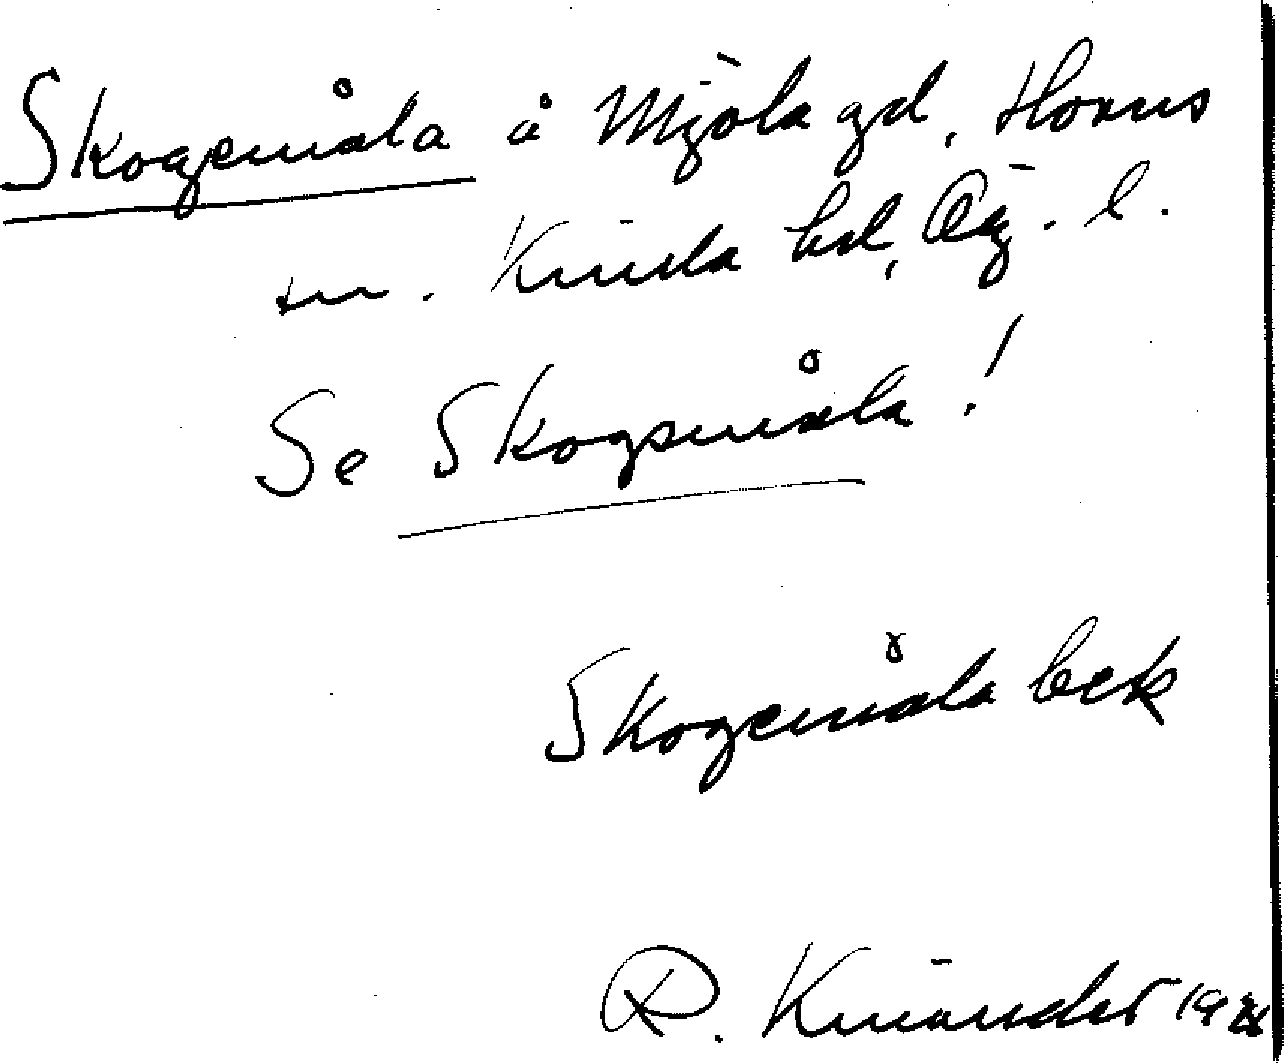 Skogemåla å Mjöla gd, Horns
sn. Kinda hd, Ög. l.
Se Skogsmåla!
Skogemåla bek
R. Kinander